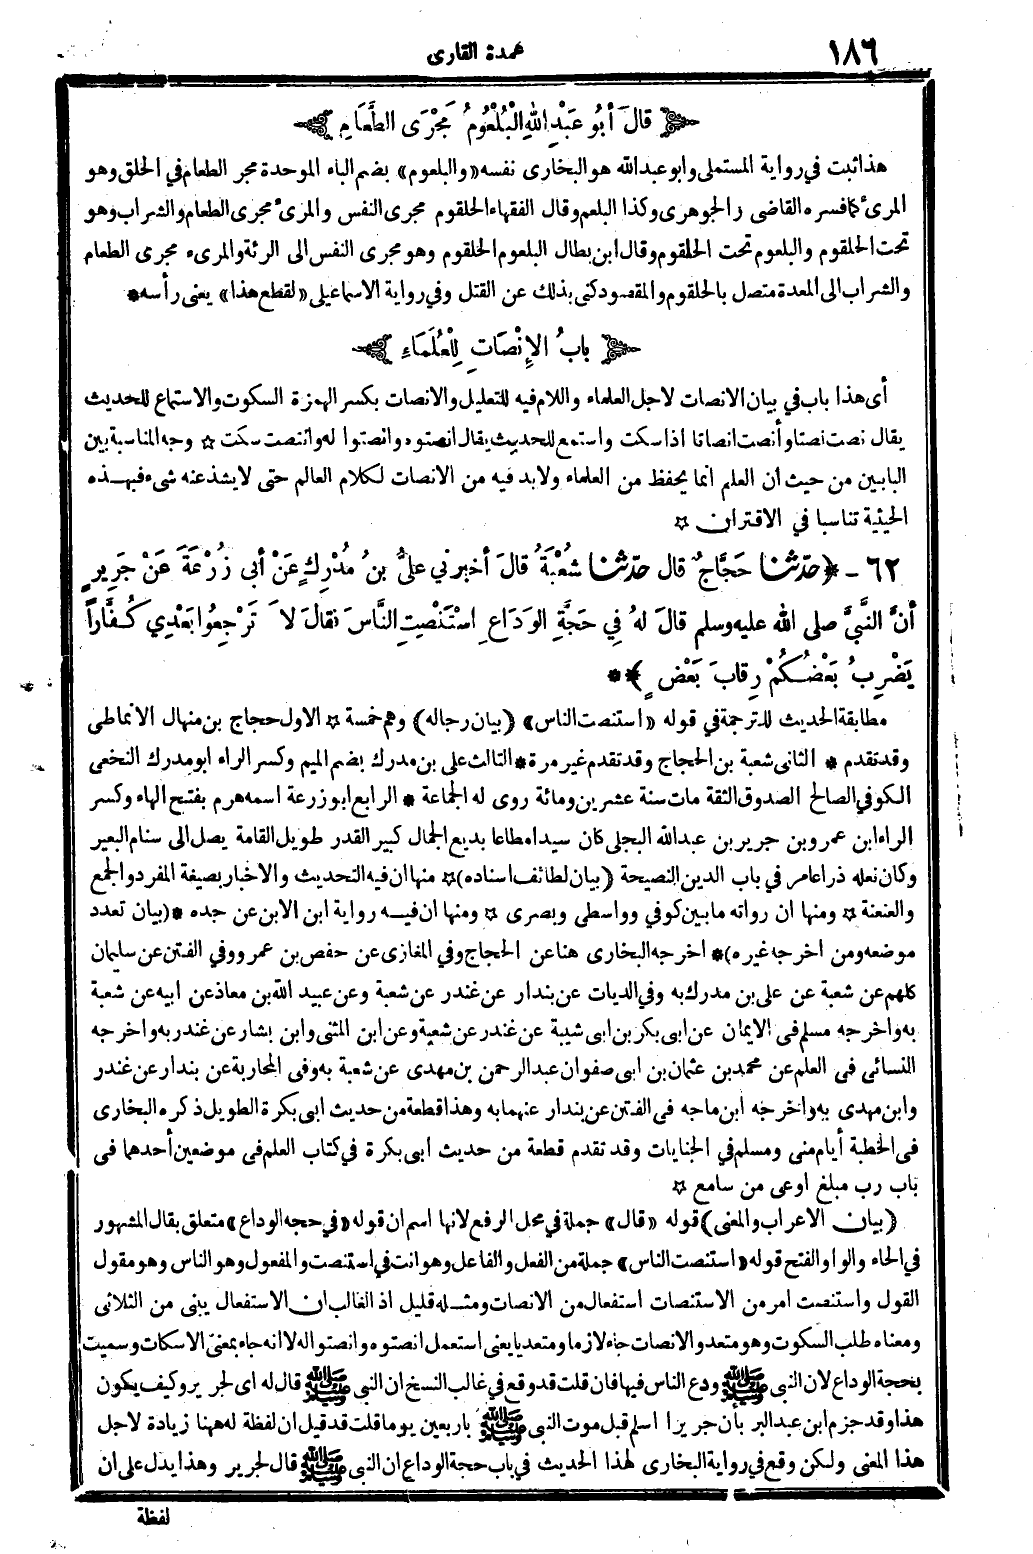 ١٨٦
عمدة القارى
قَالَ أَبُو عَبْدِ اللهِ الْبُلْعُومُ مَجْرَى الطَّعَامِ
هذا ثبت في رواية المستملى وابو عبد الله هو البخارى نفسه «والبلعوم» بضم الباء الموحدة مجر الطعام في الحلق وهو
المرىء كما فسره القاضى والجوهرى وكذا البلعم وقال الفقهاء الحلقوم مجرى النفس والمرىء مجرى الطعام والشراب وهو
تحت الحلقوم والبلعوم تحت الحلقوم وقال ابن بطال البلعوم الحلقوم وهو مجرى النفس الى الرئة والمرىء مجرى الطعام
والشراب الى المعدة متصل بالحلقوم والمقصود كنى بذلك عن القتل وفي رواية الاسماعيلى «لقطع هذا» يعنى رأسه *
بابُ الإِنْصَاتِ لِلْعُلَمَاءِ
أى هذا باب في بيان الانصات لاجل العلماء واللام فيه للتعليل والانصات بكسر الهمزة السكوت والاستماع للحديث
يقال نصت نصتا وأنصت انصاتا اذا سكت واستمع للحديث يقال انصتوه وانصتوا له وانتصت سكت ☆ وجه المناسبة بين
البابين من حيث أن العلم انما يحفظ من العلماء ولابد فيه من الانصات لكلام العالم حتى لا يشذ عنه شىء فبهذه
الحيثية تناسبا في الاقتران ☆
٦٢ - ﴿حَدَّثَنَا حَجَّاجٌ قال حَدَّثَنَا شُعْبَةُ قالَ أخبرني عَلِيُّ بنُ مُدْرِكٍ عَنْ أبي زُرْعَةَ عَنْ جَرِيرٍ
أنَّ النَّبيَّ صلى الله عليه وسلم قالَ لهُ فِي حَجَّةِ الوَدَاعِ اسْتَنْصِتِ النَّاسَ فَقالَ لاَ تَرْجِعُوا بَعْدِي كُفَّاراً
يَضْرِبُ بَعْضُكُمْ رِقابَ بَعْضٍ﴾ *
مطابقة الحديث للترجمة في قوله «استنصت الناس» (بيان رجاله) وهم خمسة ☆ الاول حجاج بن منهال الانماطى
وقد تقدم * الثانى شعبة بن الحجاج وقد تقدم غير مرة * الثالث على بن مدرك بضم الميم وكسر الراء ابو مدرك النخعى
الكوفي الصالح الصدوق الثقة مات سنة عشرين ومائة روى له الجماعة * الرابع ابو زرعة اسمه هرم بفتح الهاء وكسر
الراء ابن عمرو بن جرير بن عبد الله البجلى كان سيدا مطاعا بديع الجمال كبير القدر طويل القامة يصل الى سنام البعير
وكان نعله ذراعا مر في باب الدين النصيحة (بيان لطائف اسناده) ☆ منها ان فيه التحديث والاخبار بصيغة المفرد والجمع
والعنعنة ☆ ومنها ان رواته ما بين كوفي وواسطى وبصرى ☆ ومنها ان فيه رواية ابن الابن عن جده * (بيان تعدد
موضعه ومن اخرجه غيره) * اخرجه البخارى هنا عن الحجاج وفي المغازى عن حفص بن عمرو وفي الفتن عن سليمان
كلهم عن شعبة عن على بن مدرك به وفي الديات عن بندار عن غندر عن شعبة وعن عبيد الله بن معاذ عن ابيه عن شعبة
به واخرجه مسلم فى الايمان عن ابى بكر بن ابى شيبة عن غندر عن شعبة وعن ابن المثنى وابن بشار عن غندر به واخرجه
النسائى فى العلم عن محمد بن عثمان بن ابى صفوان عبد الرحمن بن مهدى عن شعبة به وفى المحاربة عن بندار عن غندر
وابن مهدى به واخرجه ابن ماجه فى الفتن عن بندار عنهما به وهذا قطعة من حديث ابى بكرة الطويل ذكره البخارى
فى الخطبة أيام منى ومسلم في الجنايات وقد تقدم قطعة من حديث ابى بكرة في كتاب العلم فى موضعين أحدهما فى
باب رب مبلغ اوعى من سامع ☆
(بيان الاعراب والمعنى) قوله «قال» جملة في محل الرفع لانها اسم ان قوله «في حجه الوداع» متعلق بقال المشهور
في الحاء والواو الفتح قوله «استنصت الناس» جملة من الفعل والفاعل وهو انت في استنصت والمفعول وهو الناس وهو مقول
القول واستنصت امر من الاستنصات استفعال من الانصات ومثله قليل اذ الغالب ان الاستفعال يبنى من الثلاثى
ومعناه طلب السكوت وهو متعد والانصات جاء لازما ومتعديا يعنى استعمل انصتوه وانصتوا له لا انه جاء بمعنى الاسكات وسميت
بحجة الوداع لان النبى ﷺ ودع الناس فيها فان قلت قد وقع في غالب النسخ ان النبى ﷺ قال له اى لجرير وكيف يكون
هذا وقد جزم ابن عبد البر بأن جريرا اسلم قبل موت النبى ﷺ باربعين يوما قلت قد قيل ان لفظة له ههنا زيادة لاجل
هذا المعنى ولكن وقع في رواية البخارى لهذا الحديث في باب حجة الوداع ان النبى ﷺ قال لجرير وهذا يدل على ان
لفظة